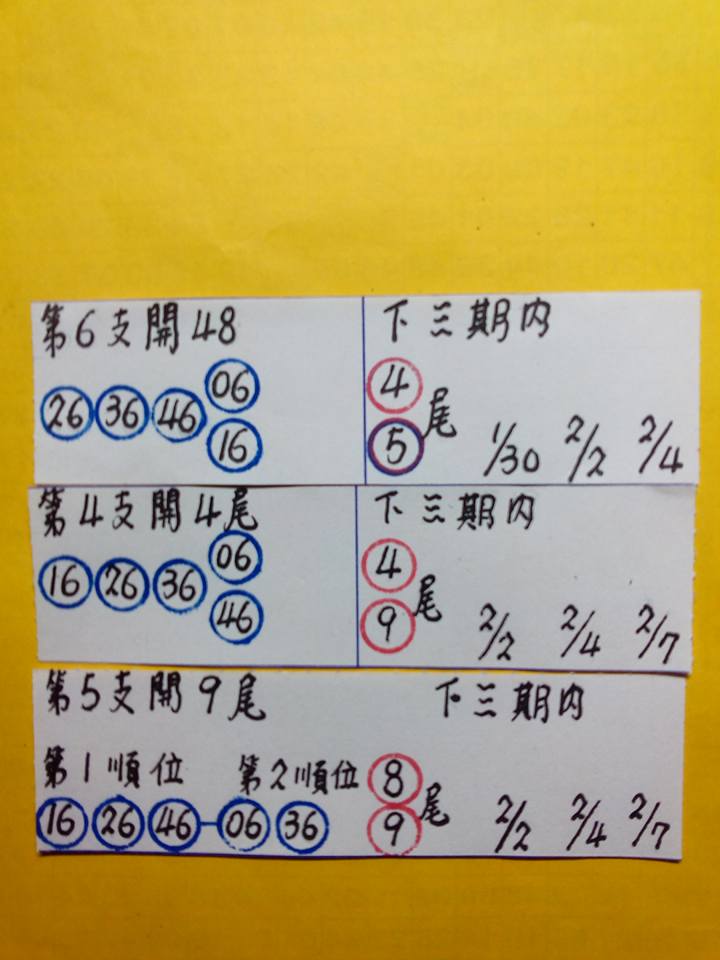 第6支開48 下三期内
26 36 46 06 4
16 5 尾 1/30 2/2 2/4
第4支開4尾 下三期内
16 26 36 06 4
46 9 尾 2/2 2/4 2/7
第5支開9尾 下三期内
第1順位 第2順位 8
16 26 46-06 36 9 尾 2/2 2/4 2/7